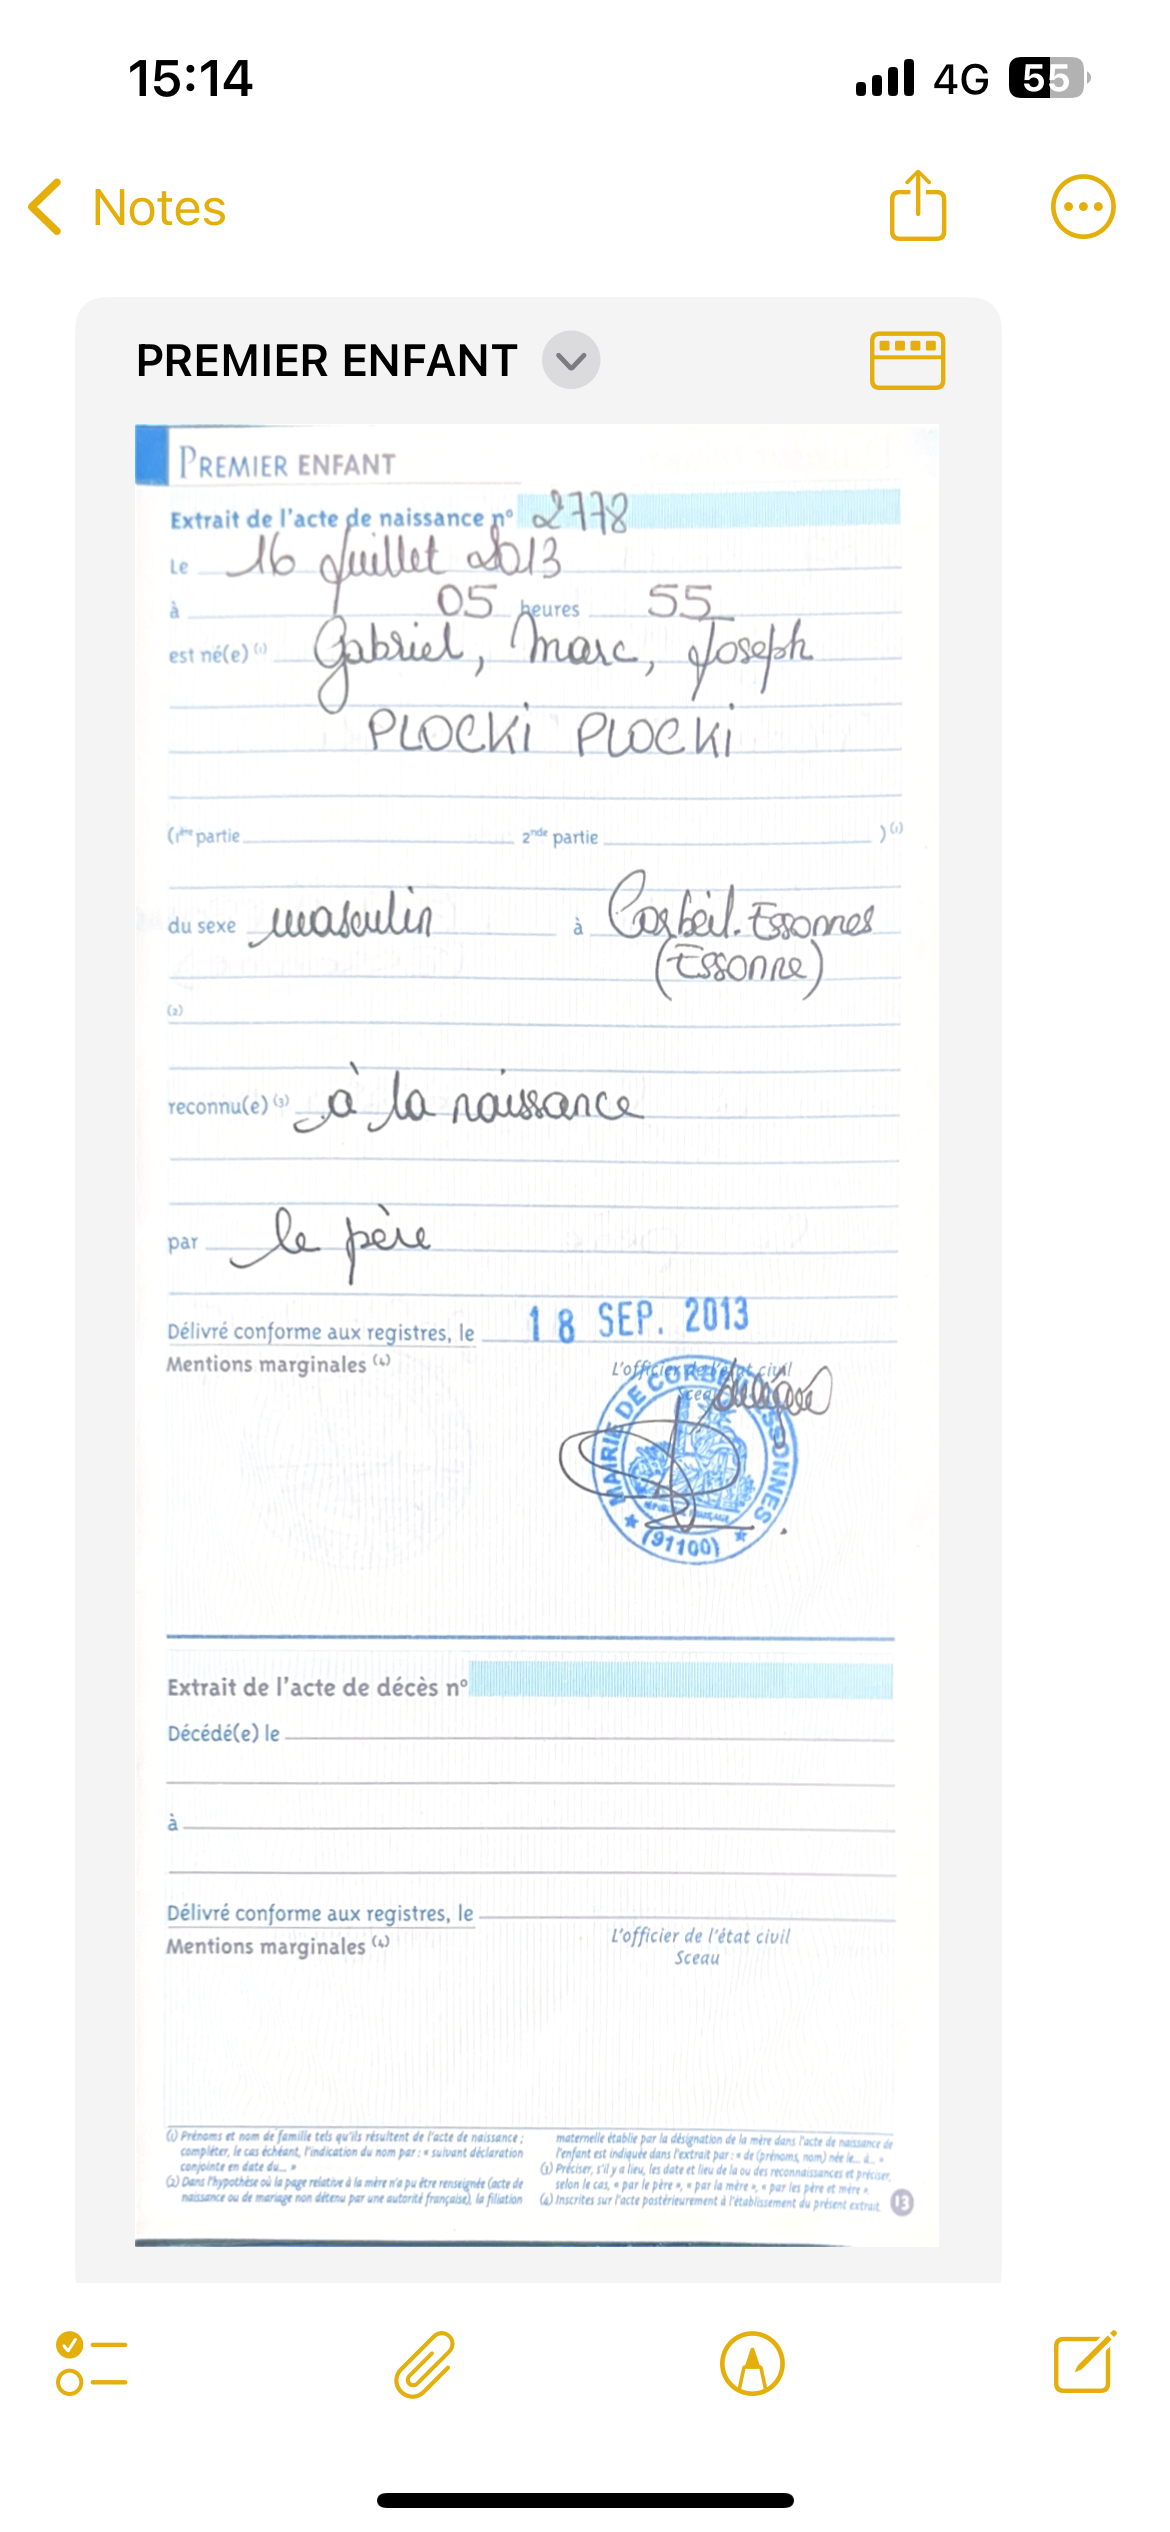 15:14
4G 55
Notes
PREMIER ENFANT
PREMIER ENFANT
Extrait de l'acte de naissance n° 2778
Le 16 Juillet 2013
à 05 heures 55
est né(e) (1) Gabriel, Marc, Joseph
PLOCKi PLOCKi
(1ère partie 2nde partie ) (1)
du sexe masculin à Corbeil.Essonnes
(Essonne)
(2)
reconnu(e) (3) à la naissance
par le père
Délivré conforme aux registres, le 18 SEP. 2013
Mentions marginales (4)
L'officier de l'état civil
Sceau
MAIRIE DE CORBEIL ESSONNES
(91100)
Extrait de l'acte de décès n°
Décédé(e) le
à
Délivré conforme aux registres, le
Mentions marginales (4)
L'officier de l'état civil
Sceau
(1) Prénoms et nom de famille tels qu'ils résultent de l'acte de naissance ;
compléter, le cas échéant, l'indication du nom par : « suivant déclaration
conjointe en date du... »
(2) Dans l'hypothèse où la page relative à la mère n'a pu être renseignée (acte de
naissance ou de mariage non détenu par une autorité française), la filiation
maternelle établie par la désignation de la mère dans l'acte de naissance de
l'enfant est indiquée dans l'extrait par : « de (prénoms, nom) née le... à... »
(3) Préciser, s'il y a lieu, les date et lieu de la ou des reconnaissances et préciser,
selon le cas, « par le père », « par la mère », « par les père et mère ».
(4) Inscrites sur l'acte postérieurement à l'établissement du présent extrait.
13